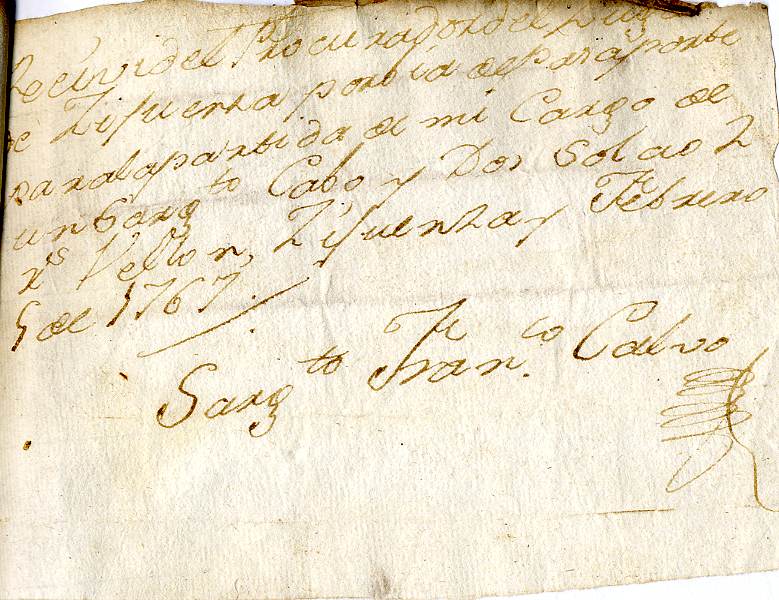 Recivi del Procurador del Lugar
de Zifuenza por via de
para la partida de mi Cargo de
un Sarg.to Cabo y Dos Soldo 2
r.s Vellon, Zifuenza y Febrero
5 de 1767.
Sarg.to Fran.co Calvo